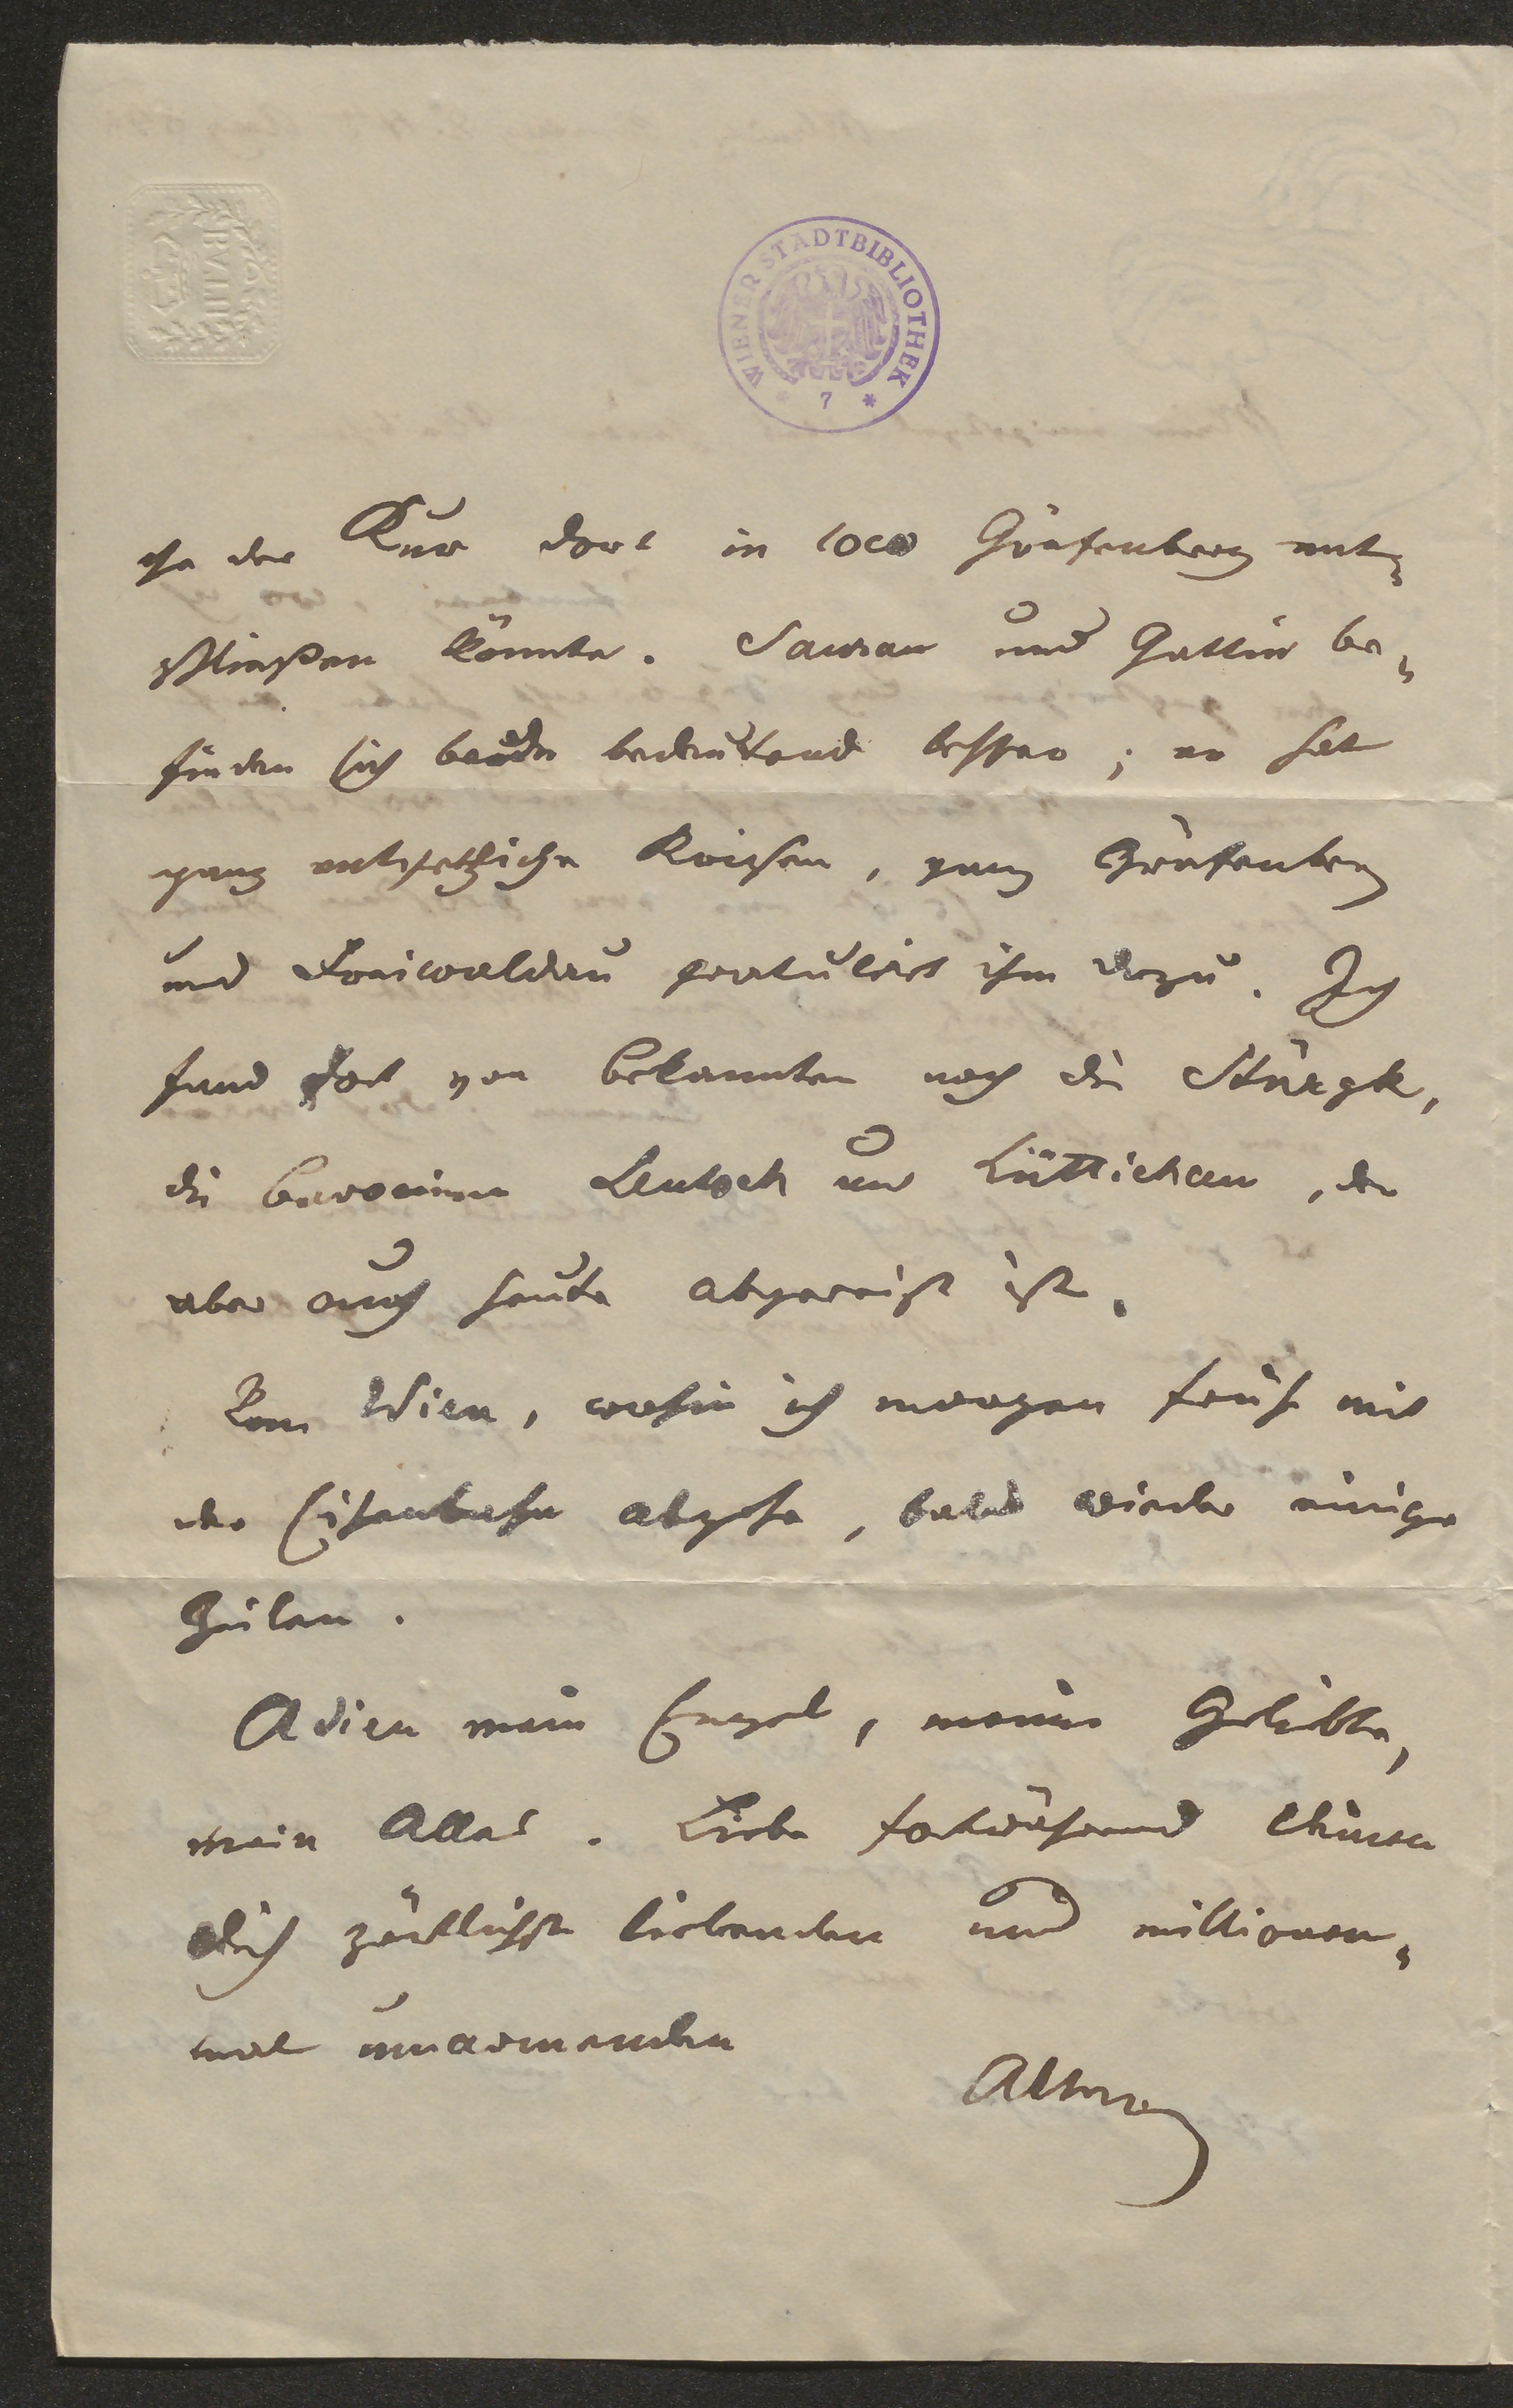 BATH
WIENER STADTBIBLIOTHEK
* 7 *
che der Kur dort in loco Gräfenberg ent¬
schließen könnte. Saurau und Gattin be¬
finden sich beide bedeutend besser; er hat
ganz entsetzliche Krisen, ganz Gräfenberg
und Freiwaldau gratulirt ihm dazu. Ich
fand dort von Bekannten noch die Stürgk,
die Baronin Leutsch und Lüttichau, der
aber auch heute abgereist ist.
Von Wien, wohin ich morgen früh mit
der Eisenbahn abgehe, bald wieder einige
Zeilen.
Adieu mein Engel, meine Geliebte,
mein Alles. Liebe fortwährend Deinen
Dich zärtlichst liebenden und millionen¬
mal umarmenden